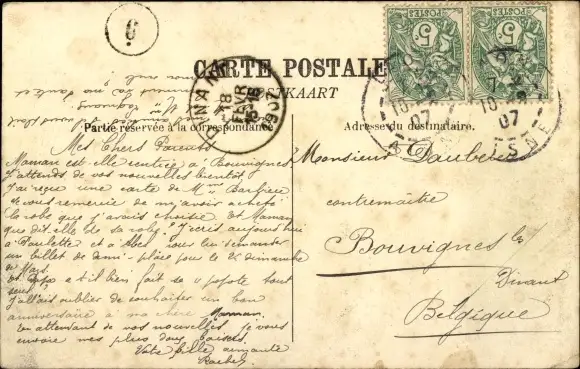 CARTE POSTALE
POSTKAART
Partie réservée à la correspondance
Adresse du destinataire.
Mes Chers Parents
Maman est elle rentrée à Bouvignes
J'attends de vos nouvelles bientôt
J'ai reçu une carte de Mme
je vous remercie de m'avoir acheté
la robe que j'avais choisie. Et Maman
que dit elle de sa robe? J'écris aujourd'hui
à Paulette et à pour lui demander
un billet de demi-place pour le 2e dimanche
de Mars.
Et Papa a t'il bien fait sa "popote tout
seul
J'allais oublier de souhaiter un bon
anniversaire à ma chère Maman.
en attendant de vos nouvelles je vous
envoie mes plus doux baisers.
Votre fille aimante
Rachel
Monsieur
contremaître
Bouvignes lez
Dinant
Belgique
DINANT
18
FEVR
1907
POSTES
5
POSTES
5
07
AISNE
6